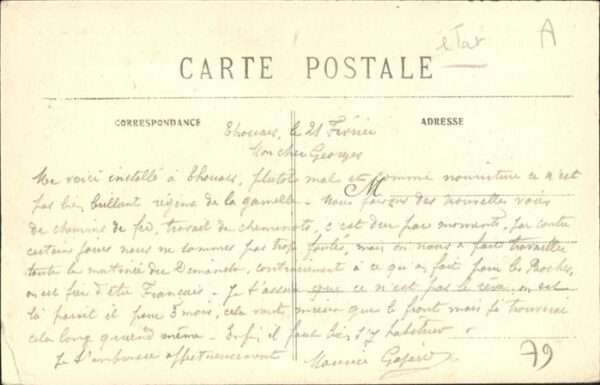 etat
A
CARTE POSTALE
CORRESPONDANCE
ADRESSE
Thouars, le 21 Février
Mon cher Georges
M
Me voici installé à Thouars, plutôt mal et comme nourriture ce n'est
pas bien brillant régime de la gamelle. Nous faisons des nouvelles voies
de chemins de fer, travail de cheminots, c'est dur par moments, par contre
certains jours nous ne sommes pas trop foulés, mais on nous a fait travailler
toute la matinée du Dimanche, contrairement à ce qu'on fait pour les Boches,
on est fier d'être Français. Je t'assure que ce n'est pas le rêve, on est
là paraît il pour 3 mois, cela vaut mieux que le front mais je trouverai
cela long quand même. Enfin il faut bien s'y habituer.
Je t'embrasse affectueusement
Maurice
79